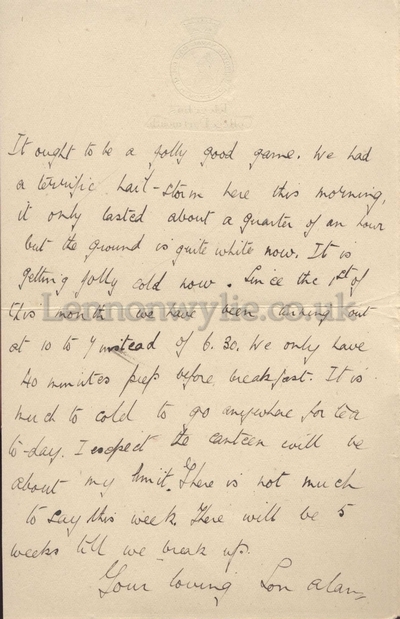 It ought to be a jolly good game. We had
a terrific hail-storm here this morning,
it only lasted about a quarter of an hour
but the ground is quite white now. It is
getting jolly cold now. Since the 1st of
this month we have been turning out
at 10 to 7 instead of 6.30. We only have
40 minuites prep before breakfast. It is
much to cold to go anywhere for tea
to-day. I expect the canteen will be
about my limit. There is not much
to say this week. There will be 5
weeks till we break up.
Your loving Son Alan,
Lennonwylie.co.uk